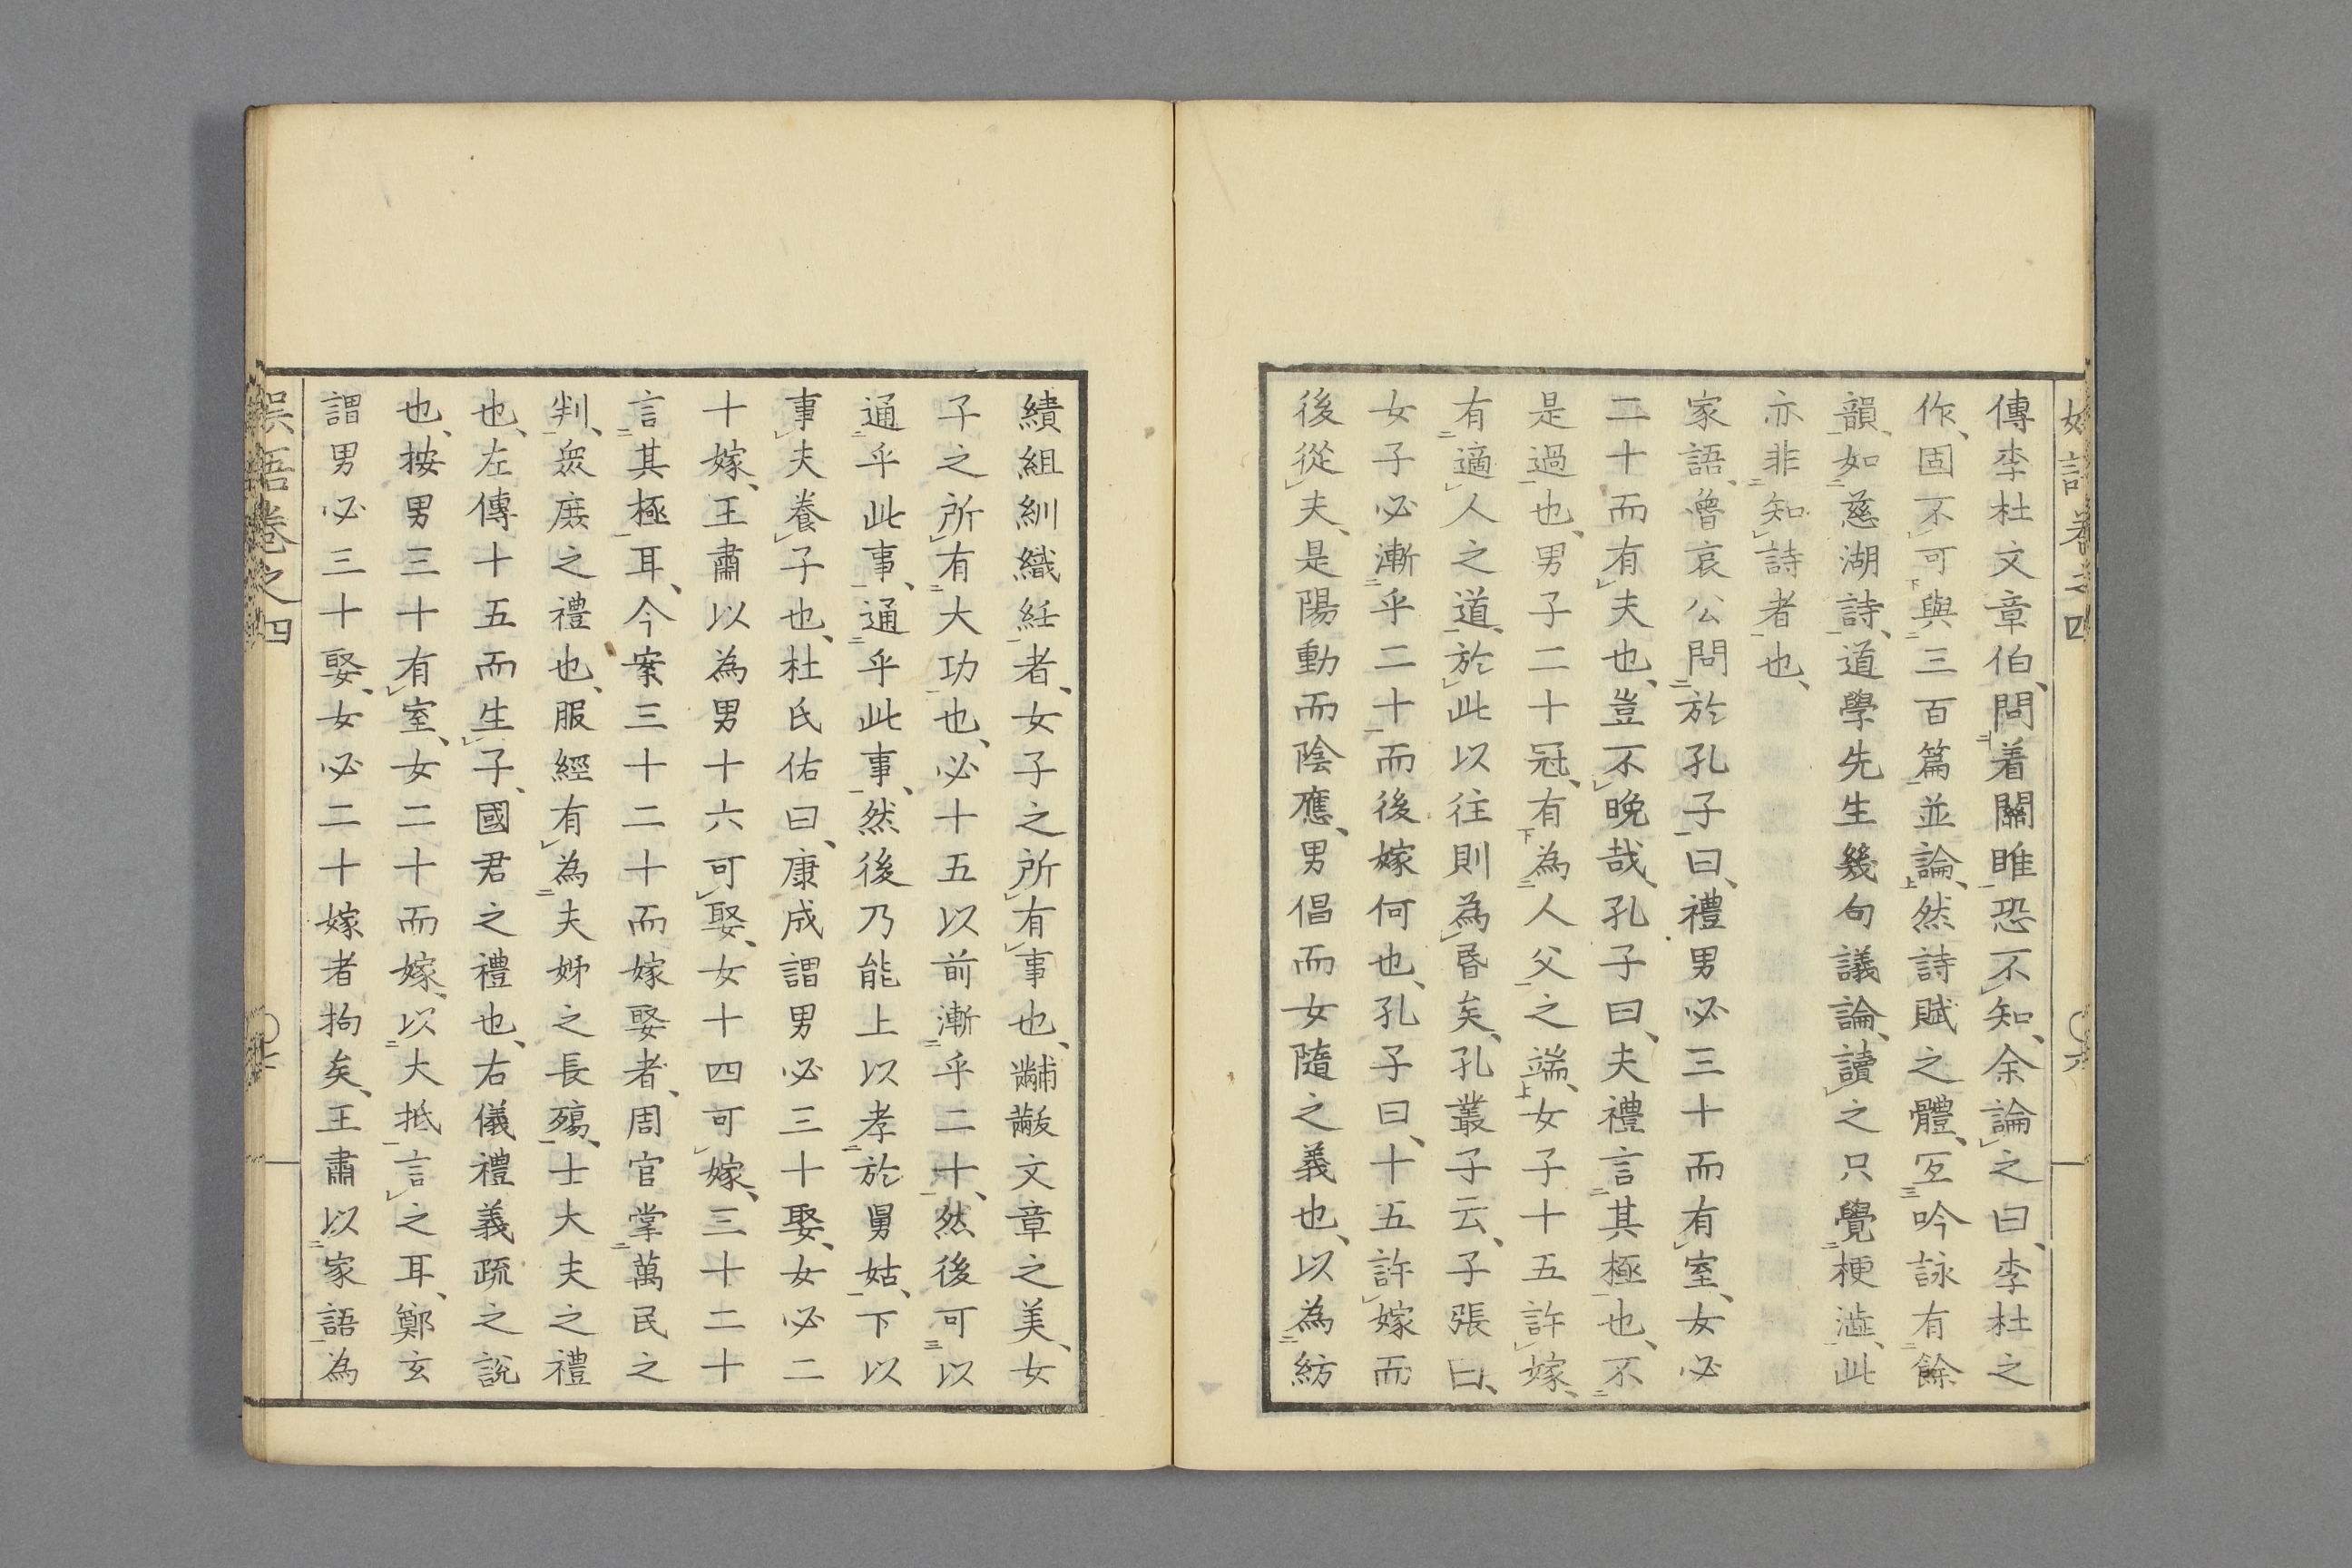 傳李杜文章伯、問着關雎恐不知、余論之曰、李杜之
作、固不可與三百篇並論、然詩賦之體、至吟詠有餘
韻、如慈湖詩、道學先生幾句議論、讀之只覺梗澁、此
亦非知詩者也、
家語、魯哀公問於孔子曰、禮男必三十而有室、女必
二十而有夫也、豈不晚哉、孔子曰、夫禮言其極也、不
是過也、男子二十冠、有為人父之端、女子十五許嫁、
有適人之道、於此以往則為昬矣、孔叢子云、子張曰、
女子必漸乎二十而後嫁何也、孔子曰、十五許嫁而
後從夫、是陽動而陰應、男倡而女隨之義也、以為紡
績組紃織紝者、女子之所有事也、黼黻文章之美、女
子之所有大功也、必十五以前漸乎二十、然後可以
通乎此事、通乎此事、然後乃能上以孝於舅姑、下以
事夫養子也、杜氏佑曰、康成謂男必三十娶、女必二
十嫁、王肅以為男十六可娶、女十四可嫁、三十二十
言其極耳、今案三十二十而嫁娶者、周官掌萬民之
判、衆庶之禮也、服經有為夫姊之長殤、士大夫之禮
也、左傳十五而生子、國君之禮也、右儀禮義疏之說
也、按男三十有室、女二十而嫁、以大抵言之耳、鄭玄
謂男必三十娶、女必二十嫁者拘矣、王肅以家語為
語卷之四